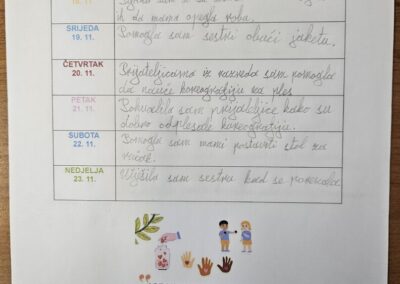 18. 11.
da mama opegla robu.
SRIJEDA
19. 11.
Pomogla sam sestri obući jaketu.
ČETVRTAK
20. 11.
Prijateljicama iz razreda sam pomogla
da nauče koreografiju za ples
PETAK
21. 11.
Pohvalila sam prijateljice kako su
dobro otplesale koreografiju.
SUBOTA
22. 11.
Pomogla sam mami postaviti stol za
NEDJELJA
23. 11.
Utješila sam sestru kad se porezala.